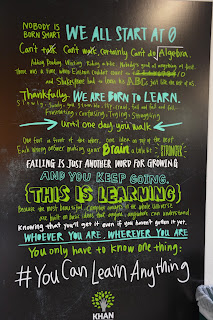 NOBODY IS BORN SMART WE ALL START AT 0
Can't talk. Can't walk. Certainly Can't do Algebra.
Adding, Reading, Writing, Riding a bike. Nobody's good at anything at first.
There was a time when Einstein couldn't count to 10
and Shakespeare had to learn his ABCs just like the rest of us.
Thankfully, WE ARE BORN TO LEARN.
Slowly, you stumble, slip, crawl, fall and fall and fall.
Frustrating, Confusing, Trying, Struggling
until one day you walk
One foot in front of the other. One idea on top of the next
Each wrong answer making your brain a little bit STRONGER.
FAILING IS JUST ANOTHER WORD FOR GROWING
AND YOU KEEP GOING.
{THIS IS LEARNING}
Because the most beautiful, complex concepts in the whole universe
are built on basic ideas that anyone, anywhere can understand.
Knowing that you'll get it even if you haven't gotten it yet.
WHOEVER YOU ARE, WHEREVER YOU ARE
You only have to know one thing:
#YouCanLearnAnything
KHAN